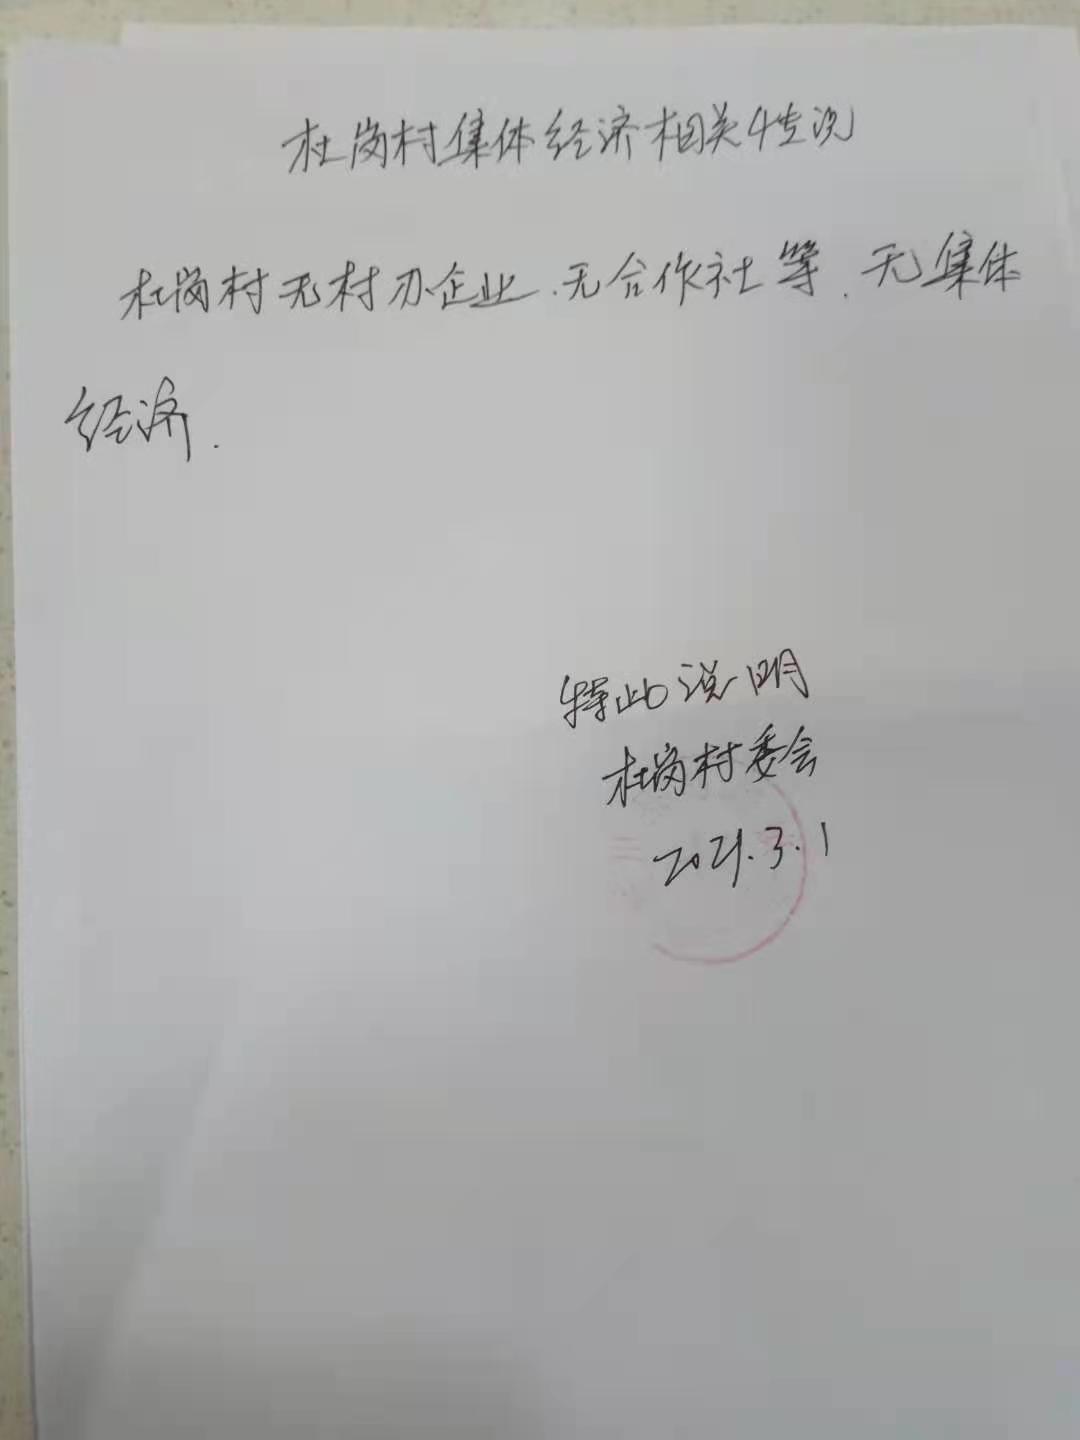 杜岗村集体经济相关情况
杜岗村无村办企业.无合作社等.无集体
经济.
特此说明
杜岗村委会
2021.3.1